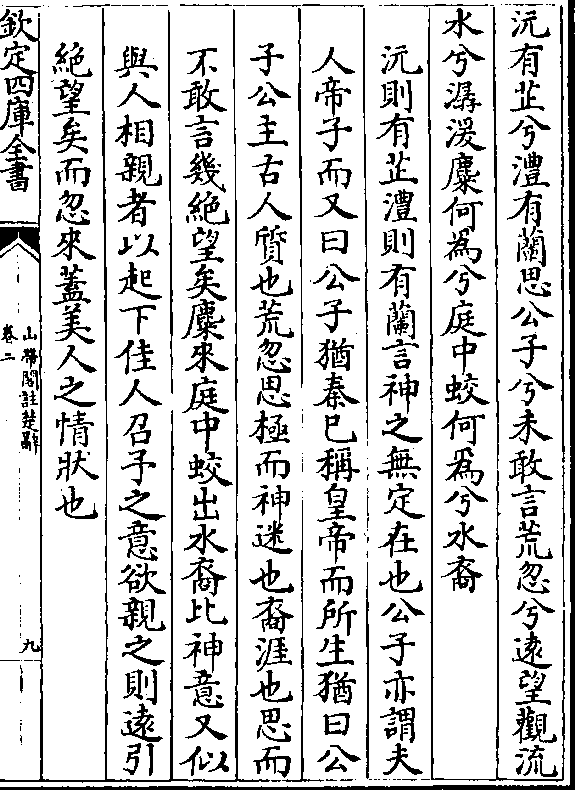 沅有芷兮澧有蘭思公子兮未敢言荒忽兮遠望觀流
水兮潺湲麋何為兮庭中蛟何為兮水裔
沅則有芷澧則有蘭言神之無定在也公子亦謂夫
人帝子而又曰公子猶秦已稱皇帝而所生猶曰公
子公主古人質也荒忽思極而神迷也裔涯也思而
不敢言幾絶望矣麋來庭中蛟出水裔比神意又似
與人相親者以起下佳人召子之意欲親之則遠引
絶望矣而忽來蓋美人之情狀也
欽定四庫全書
山帶閣註楚辭
卷二
九